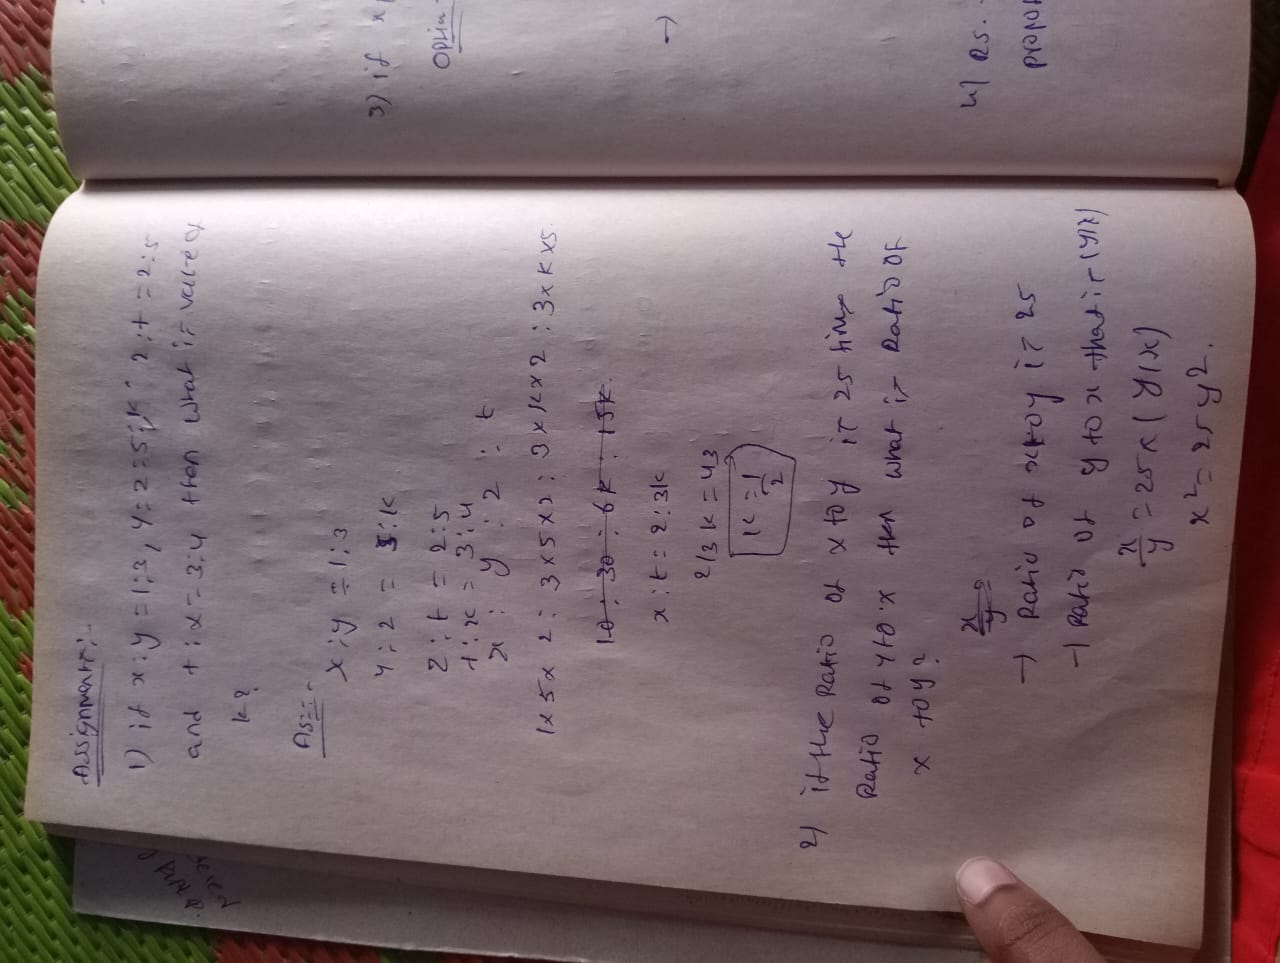 Assignment:-
1) if x:y = 1:3, y:z = 5:k z:t = 2:5
and t:x = 3:4 then what is value of
k?
As:-
x:y = 1:3
y:z = 5:k
z:t = 2:5
t:x = 3:4
x : y : z : t
1x5x2 : 3x5x2 : 3xkx2 : 3xkx5
10 : 30 : 6k : 15k
x:t = 2:3k
2/3k = 4/3
k = 1/2
2) if the Ratio of x to y is 25 times the
Ratio of y to x then what is Ratio of
x to y?
x/y =
→ Ratio of x to y is 25
→ Ratio of y to x that is (y/x)
x/y = 25x(y/x)
x² = 25y².
3) if x
option
→
4) Rs.
propor